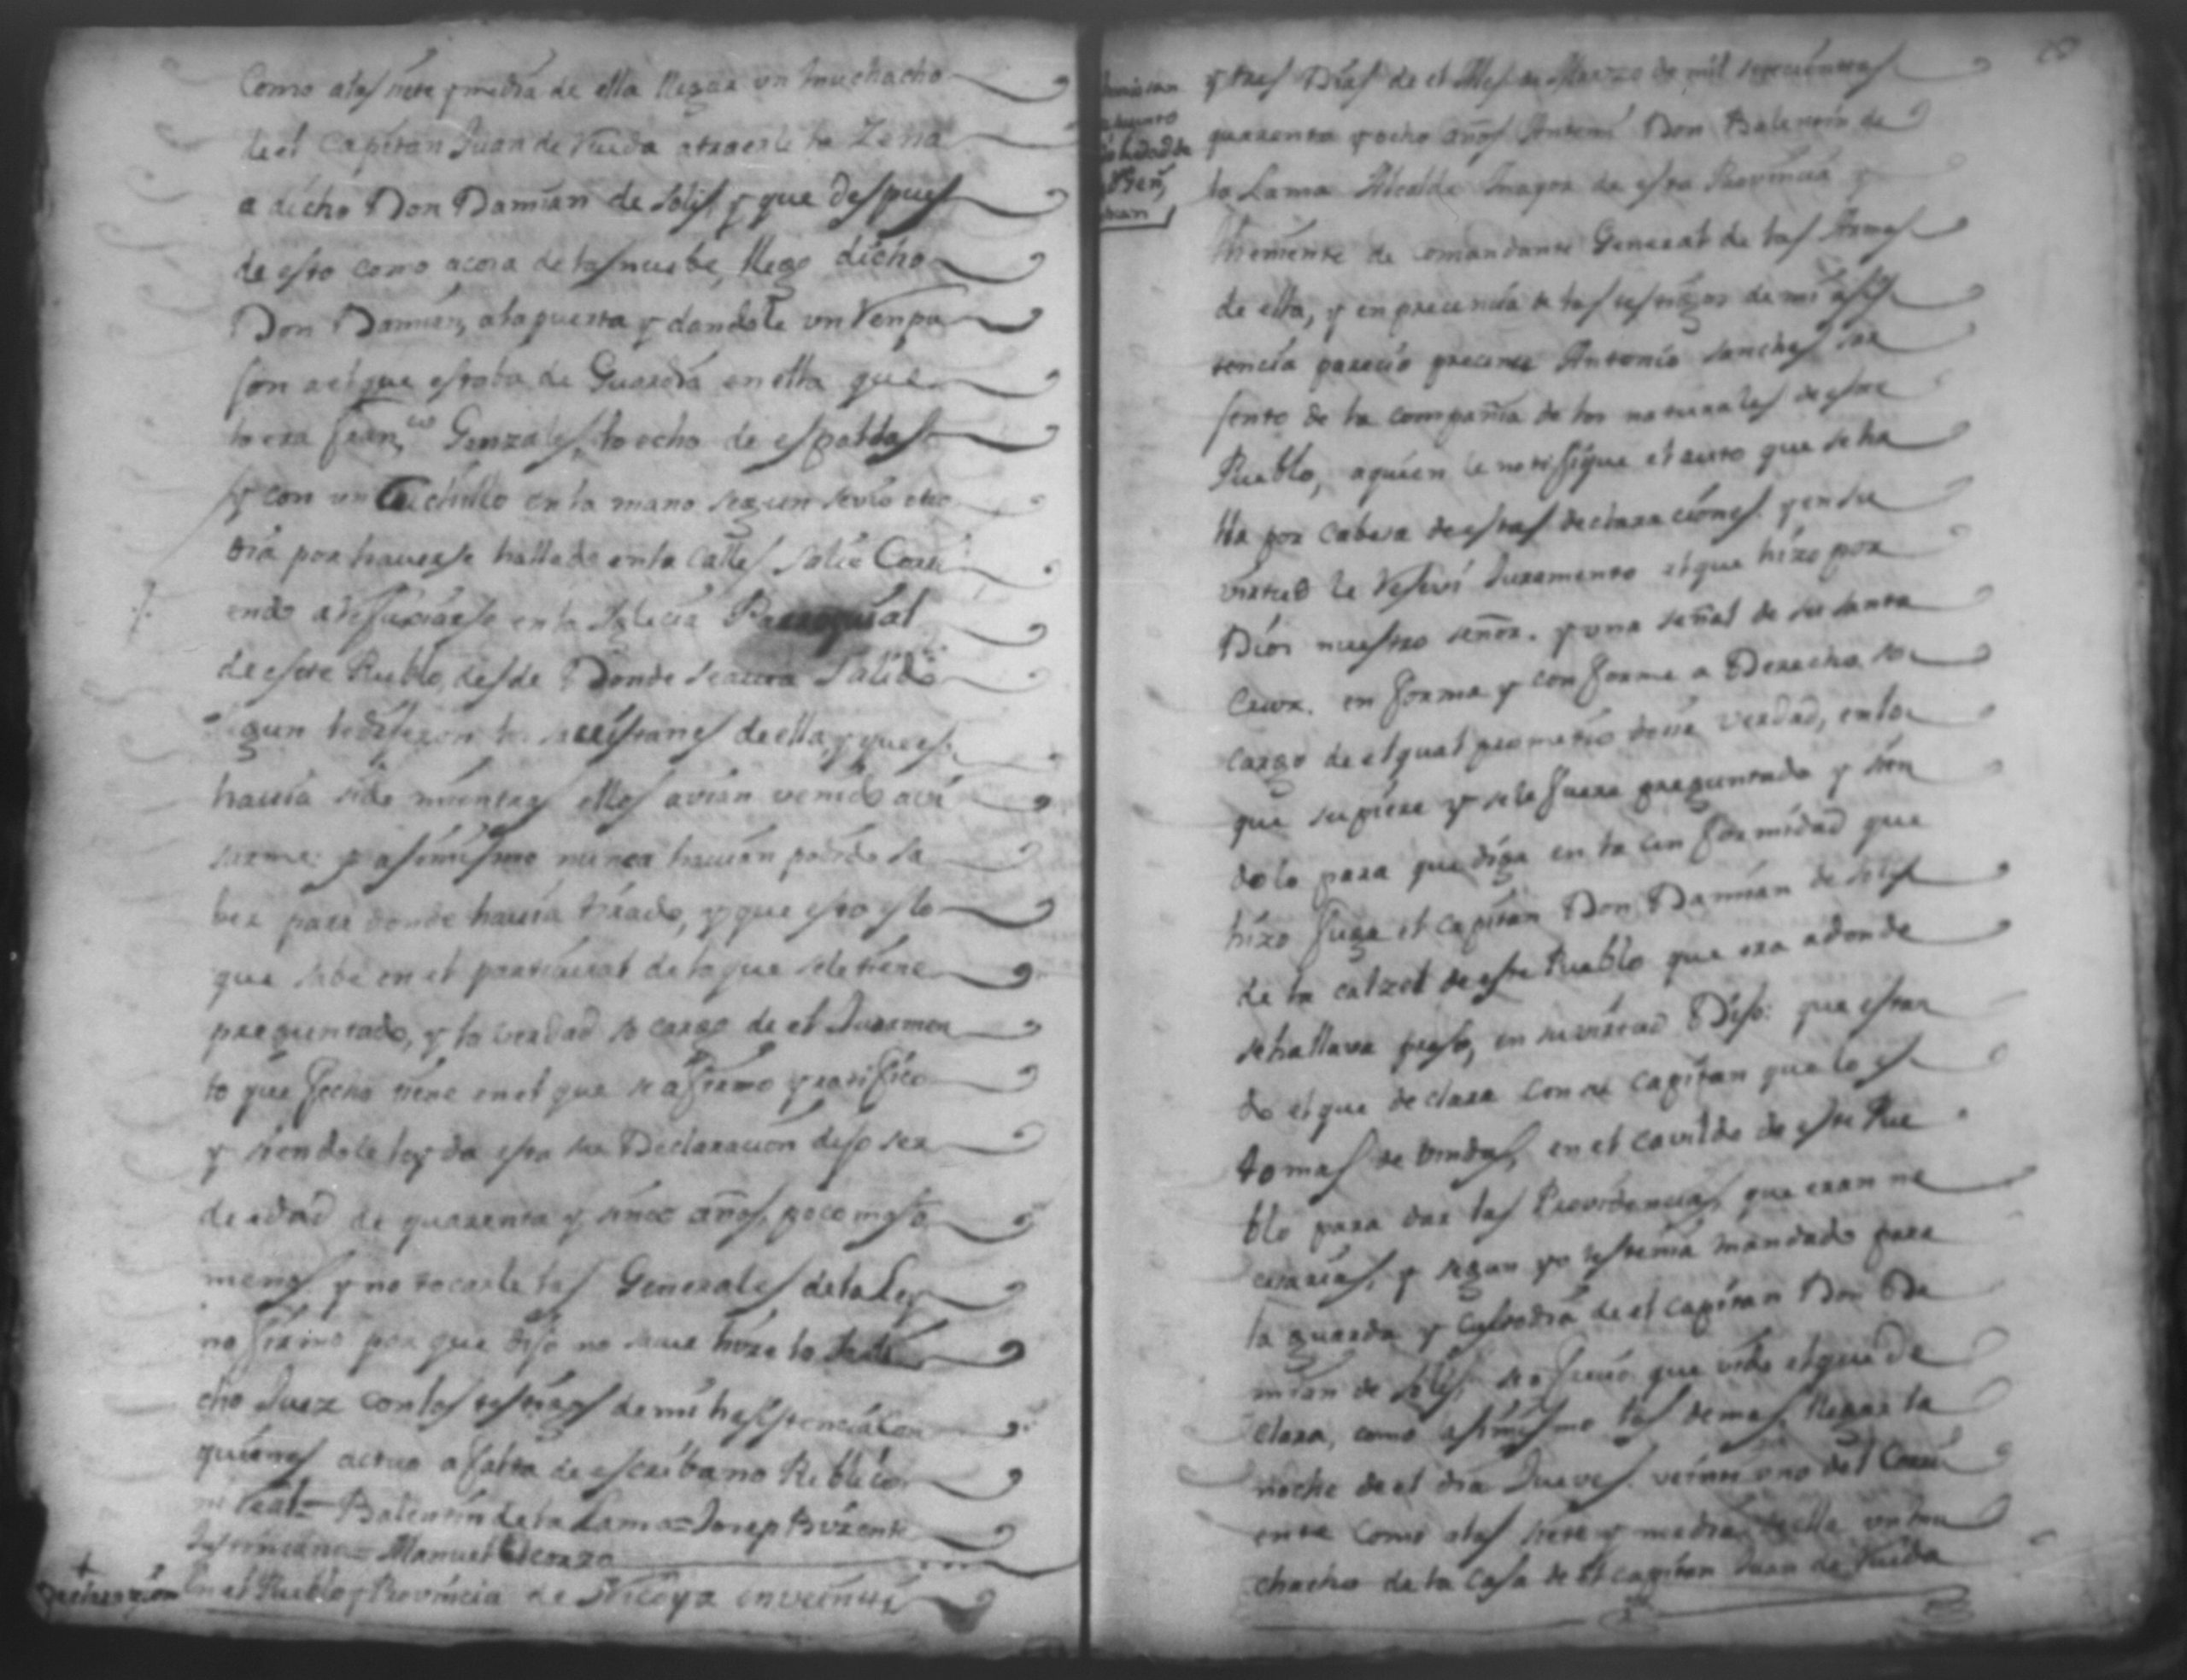 Como alas siete y media de ella llegar un muchacho
de el Capitan Juan de Rueda atraerle la Zena
a dicho Don Damian de Solis, y que despues
de esto como acosa de las nuebe, llego dicho
Don Damian, ala puerta y dandole un Renpu
son a el que estaba de Guardia en ella que
lo era Fran,co Gonzales, lo echo de espaldas
y con un Cuchillo en la mano segun sevio otro
dia por haverse hallado en la calle, salio Corri
endo a Refuxiarse en la Iglecia Parroquial
de este Pueblo, desde Donde seavia Salido
segun le dijeron los sacristanes de ella, y que es
havia sido mientras ellos avian venido avi
sarme: y asimismo nunca havian podido sa
ber para donde havia tirado, y que esto es lo
que sabe en el particular de lo que sele tiene
preguntado, y la verdad so cargo de el Juramen
to que fecho tiene en el que se afirmo y ratifico
y siendole leyda esta su Declaracion dijo ser
de edad de quarenta y sinco años, poco mas o
menos y no tocarle las Generales de la Ley
no firmo por que dijo no saver hizelo Yo di
cho Juez con los testigos de mi hasistencia con
quienes actuo a falta de escribano Publico
ni Real= Balentin de la Lama= Josep Bizente
= Manuel
Declarazion En el Pueblo y Provincia de Nicoya en veinti
y tres Dias de el Mes de Marzo de mil setecientos
quarenta y ocho años Antemi Don Balentin de
la Lama Alcalde mayor de esta Provincia y
theniente de Comandante General de las Armas
de ella, y en precencia de los testigos de mi asis
tencia parecio precente Antonio Sanches Sar
sento de la compañia de los naturales de este
Pueblo, aquien le notifique el auto que se ha
lla por Cabesa de estas declaraciones y en su
virtud le Resevi Juramento el que hizo por
Dios nuestro señor. y una señal de su santa
Cruz. en forma y conforme a Derecho so
cargo de el qual prometio desir verdad, en lo
que supiere y sele fuere preguntado y sien
dolo para que diga en la conformidad que
hizo fuga el capitan Don Damian de Solis
de la calzel de este Pueblo que era adonde
sehallava preso, en su virtud Dijo: que estan
do el que declara con su capitan que lo es
tomas de Vindas, en el cavildo de este Pue
blo para dar las Providencias, que eran ne
cesarias, y segun yo les tenia mandado para
la guarda y Custodia de el capitan Don Da
mian de Solis, se ofrecio que vido el que de
clara, como asimismo los demas, llegar la
noche de el dia Jueves veinti uno del Corri
ente como alas siete y media de ella un mu
chacho de la Casa de el capitan Juan de Rueda